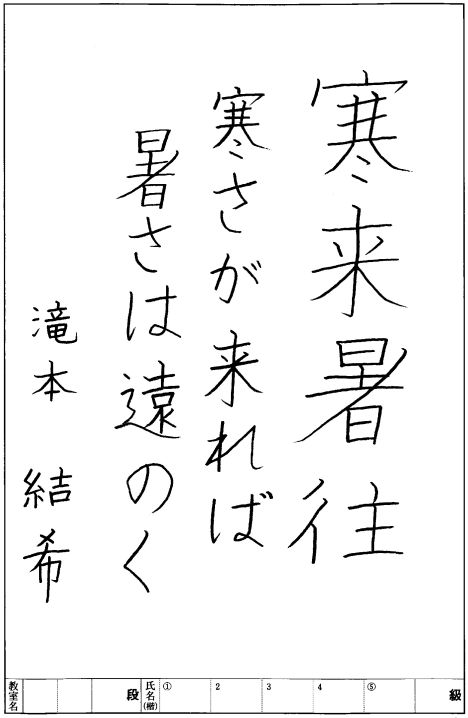 寒来暑往
寒さが来れば
暑さは遠のく
滝本 結希
教室名
段
氏名(楷)
① 2 3 4 ⑤
級